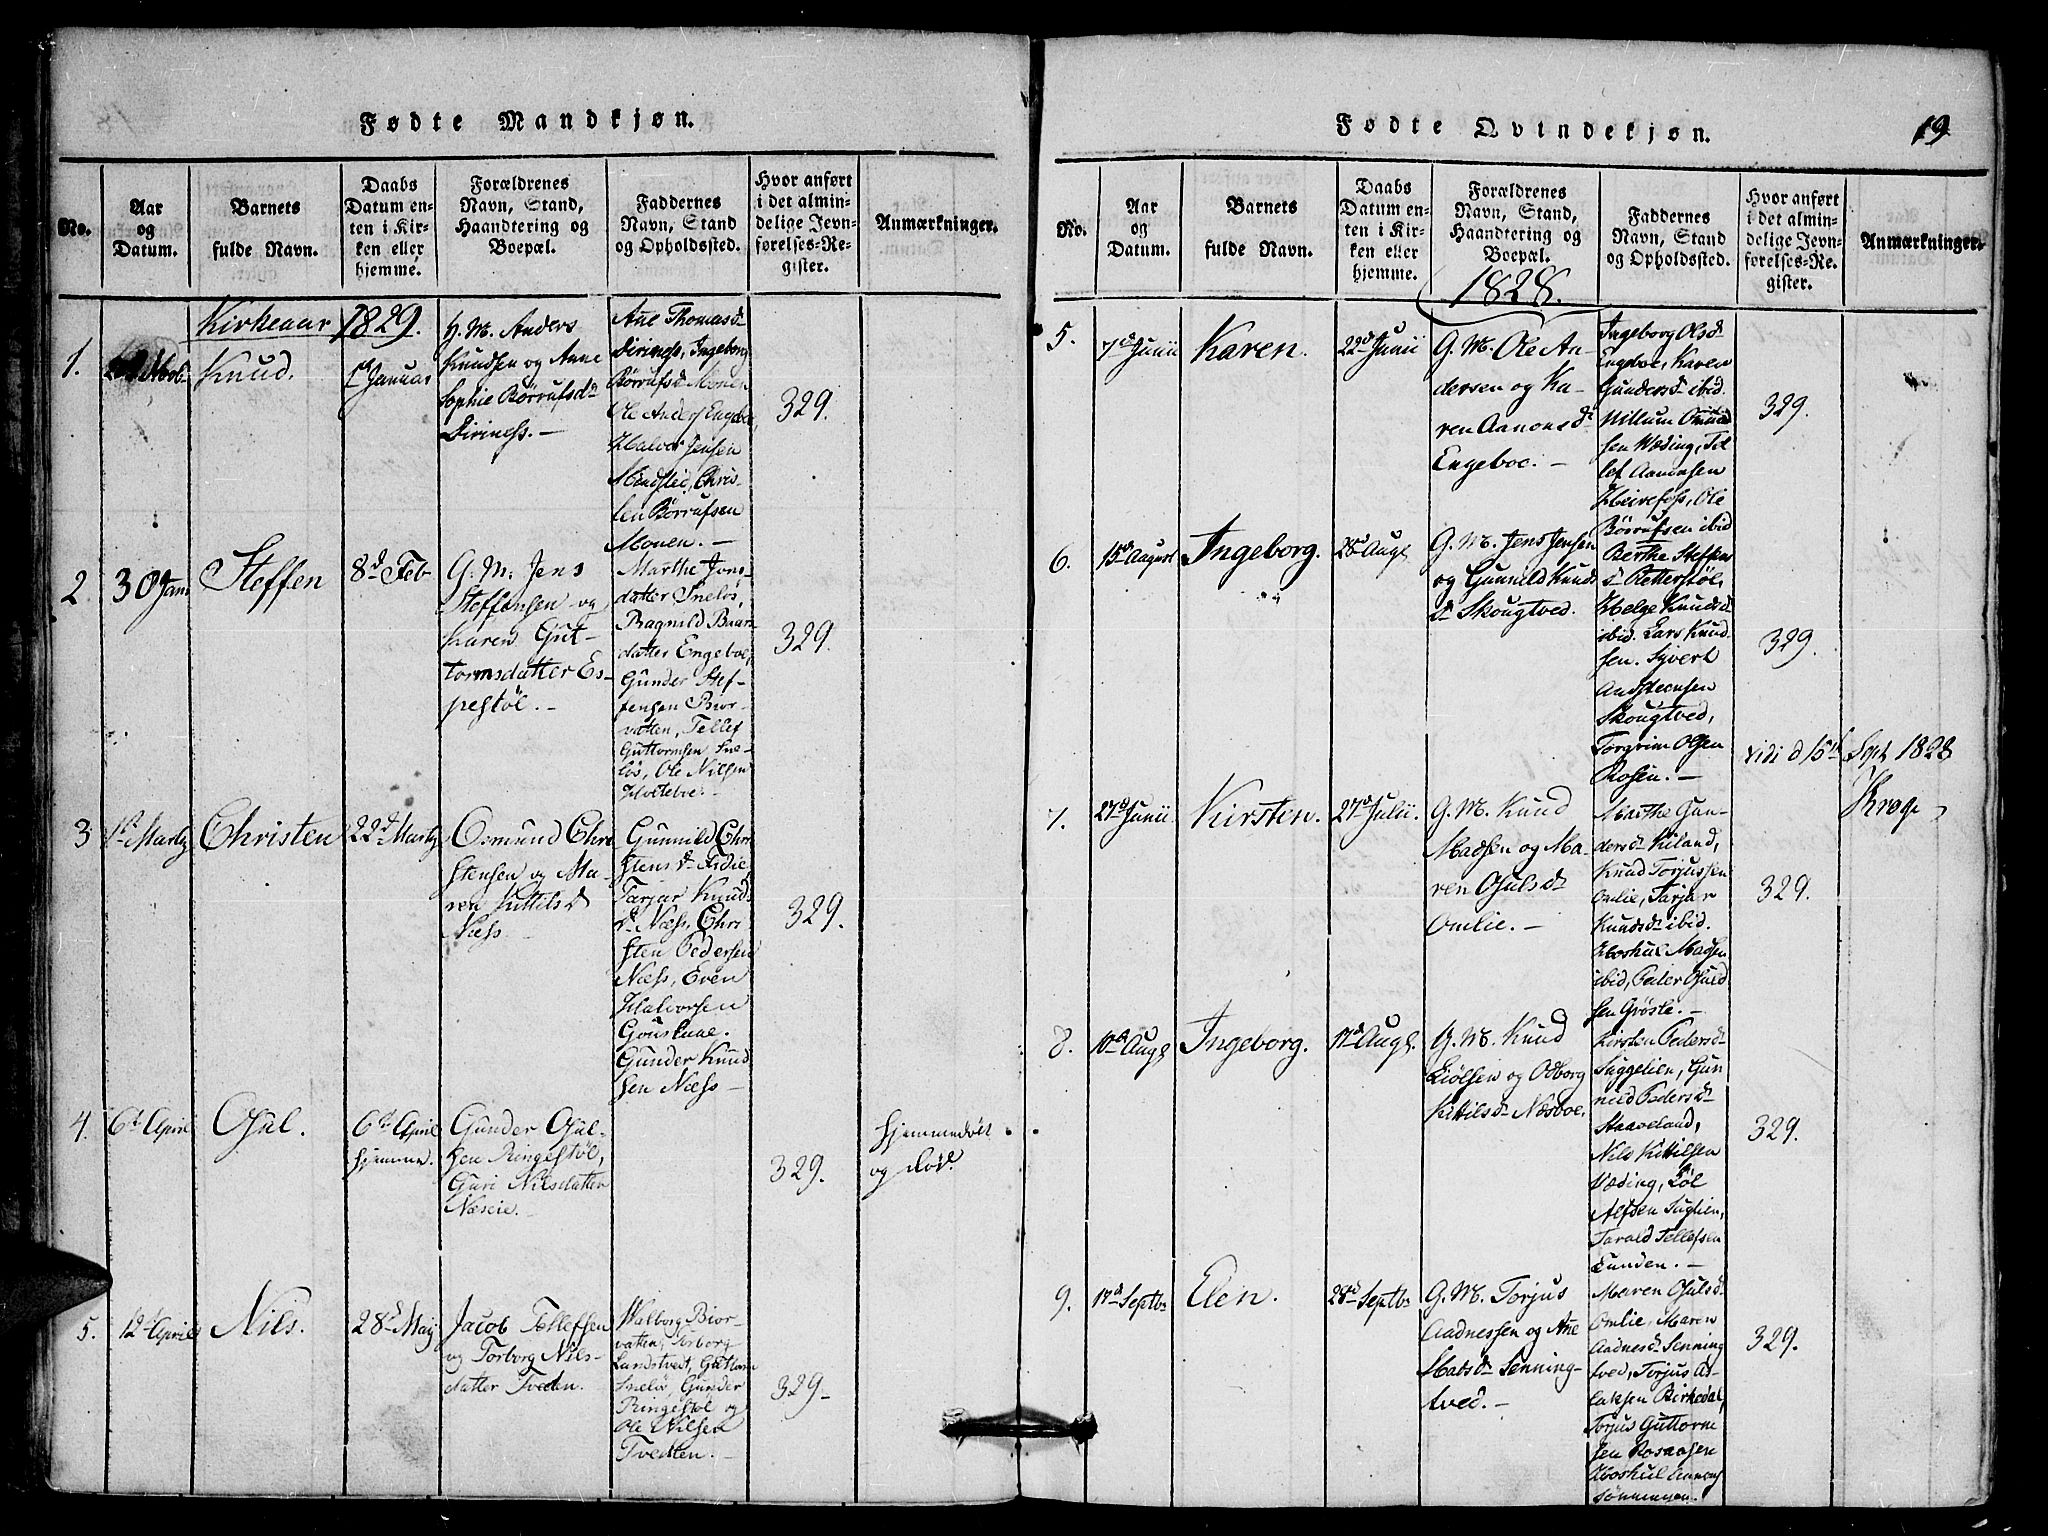 Fødte Mandkjøn.
No.
Aar
og
Datum.
Barnets
fulde Navn.
Daabs
Datum en-
ten i Kir-
ken eller
hjemme.
Forældrenes
Navn, Stand,
Haandtering og
Boepæl.
Faddernes
Navn, Stand
og Opholdssted.
Hvor anført
i det almin-
delige Jevn-
førelses-Re-
gister.
Anmærkninger.
Kirkeaar 1829.
1.
Knud.
Januar
G. M. Anders
Knudsen og Anne
Sophie Børrufsd.
Dirinefs. -
Ane Thomasd.
Dirinefs, Ingeborg
Børrufsd. Monen
Ole Anders Engeboe,
Halvor Jensen
Chris-
ten Børrufsen
Monen. -
329.
2.
30 Jan
Steffen
8d Feb
G. M. Jens
Steffensen og
Karen Gut-
tormsdatter Es-
pestöl. -
Marthe Jens-
datter Sneløs,
Ragnild Baar-
datter Engeboe,
Gunder Stef-
fensen Bior-
vatten, Tellef
Guttormsen Sne-
løs, Ole Nilsen
329.
3
1st Marty
Christen
22d Marty
Osmund Chri
stensen og Ma-
ren Kittilsd
Næss
Gunnild Chri
stensd.
Tarjar Knud
d. Næss, Chri
sten Pedersen
Næss, Even
Halvorsen
Gunder Knud
sen Næss -
329.
4.
6d April
Osul.
6d April
hjemme.
Gunder Osul-
sen Ringestöl,
Guri Nilsdatter
Næseie.
329.
hjemmedøbt
og død.
5.
12d April
Nils.
28d May
Jacob Tellefsen
og Torborg Nils-
datter Tveden.
Walborg Bior-
vatten, Torborg
Landstvedt, Guttorm
Sneløs, Gunder
Ringestøl og
Ole Nilsen
Tvedten. -
329-
Fødte Qvindekjøn.
19
No.
Aar
og
Datum.
Barnets
fulde Navn.
Daabs
Datum en-
ten i Kir-
ken eller
hjemme.
Forældrenes
Navn, Stand,
Haandtering og
Boepæl.
Faddernes
Navn, Stand
og Opholdssted.
Hvor anført
i det almin-
delige Jevn-
førelses-Re-
gister.
Anmærkninger.
1828.
5.
7d Junii
Karen.
22d Junii
G. M. Ole An-
dersen og Ka-
ren Aanonsd.
Engeboe. -
Ingeborg Olsd.
Engeboe, Karen
Gundersd. ibid.
Willum Omund
sen Væding, Tel
lef Aanonsen
Heirefoss, Ole
Børrufsen ibid
329.
6.
15d August
Ingeborg.
28d Aug.
G. M. Jens Jensen
og Gunnild Knuds
d. Skougtved.
Berthe Steffens
d. Retterstöl,
Helge Knudsd.
ibid. Lars Knud
sen. Syvert
Andsteensen
Skougtved,
Torgrim Olsen
Rosen. -
329.
vidi d 15d Sept 1828
7.
27d Junii
Kirsten.
27d Julii.
G. M. Knud
Madsen og Ma-
ren Osulsd.
Omlie. -
Marthe Gun-
dersd. Kiland,
Knud Torjussen
Omlie, Tarjar
Knudsd. ibid.
Hoskul Madsen
ibid, Peder Osuld
sen Grøsle. -
329.
8.
10d Aug.
Ingeborg.
17d Aug.
G. M. Knud
Liølsen og Odborg
Kittilsd. Næsboe.
Kirsten Pedersd.
Suggelien, Gun
nild Pedersd.
Haaveland,
Nils Kittilsen
Væding, Løl
Alfsen Suglien,
Tarald Tellefsen
Lunden. -
329.
9.
Elen.
28d Septb.
G. M. Torjus
Aadnessen og Ane
Matsd. Senning-
tved. -
Maren Osulsd.
Omlie, Maren
Aadnesd. Senning
tved, Torjus As-
laksen Birkedal,
Torjus Guttorm
sen Rosaasen
329.